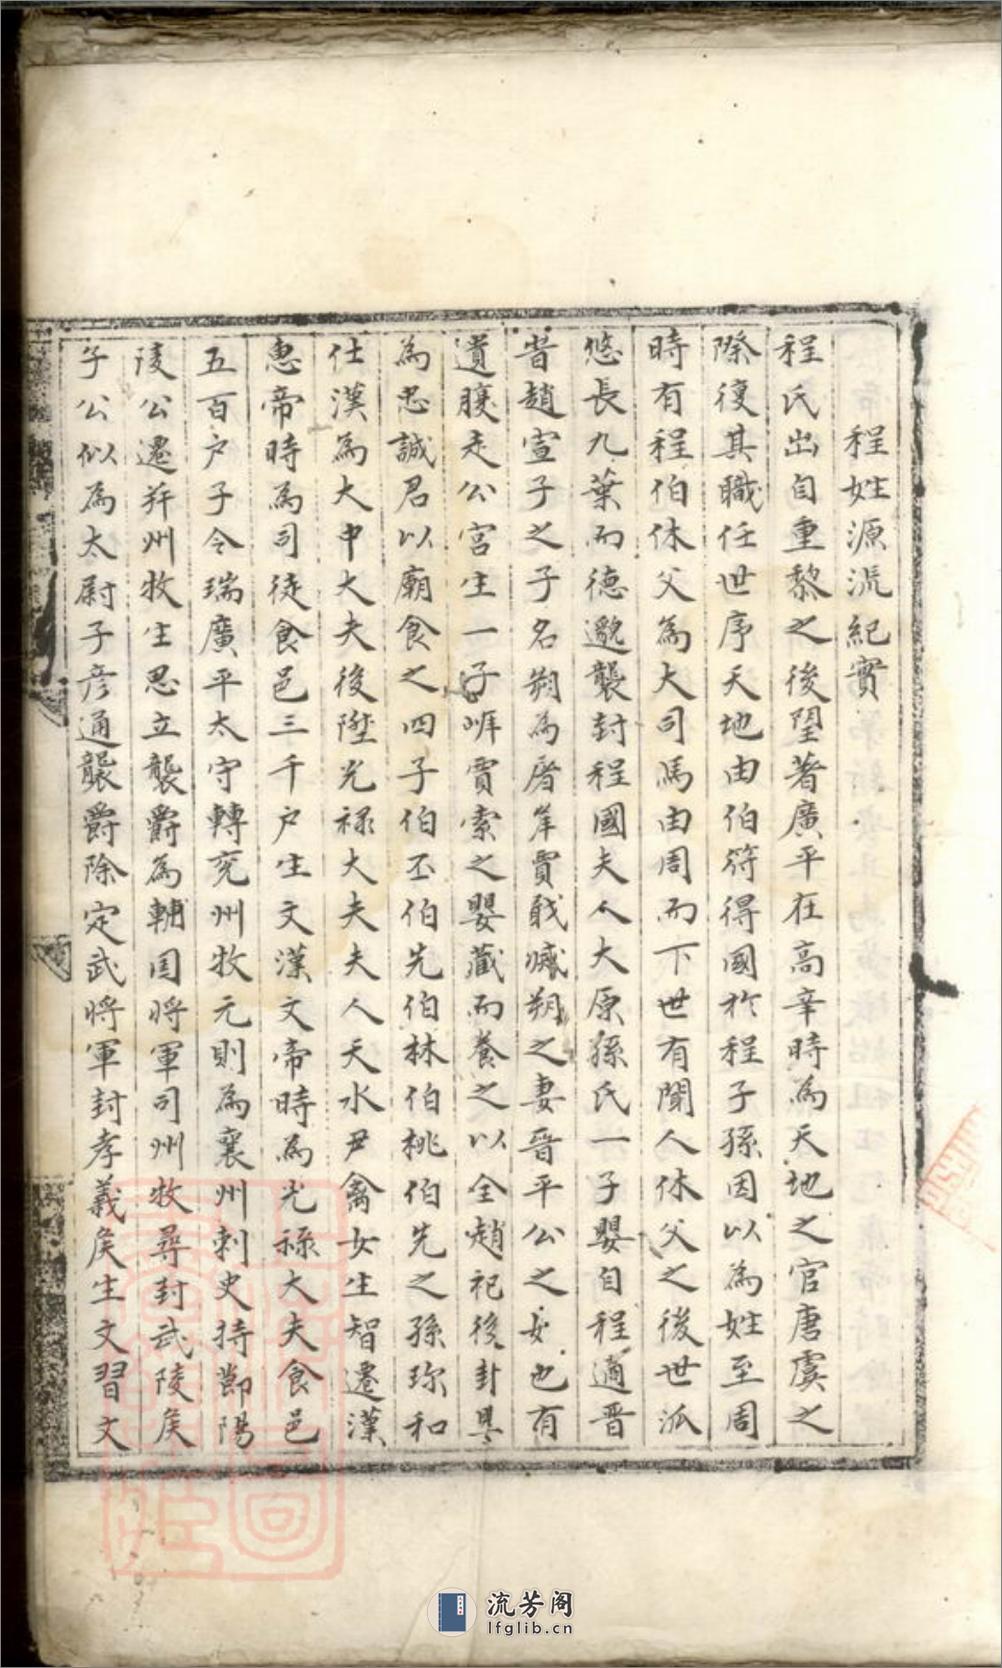 程姓源流紀實
程氏出自重黎之後望著廣平在高辛時為天地之官唐虞之
際復其職任世序天地由伯符得國於程子孫因以為姓至周
時有程伯休父為大司馬由周而下世有聞人休父之後世派
悠長九葉而德邈襲封程國夫人大原孫氏一子嬰自程適晉
昔趙宣子之子名朔為屠岸賈戕滅朔之妻晉平公之女也有
遺腹走公宮生一子岸賈索之嬰藏而養之以全趙祀後封
為忠誠君以廟食之四子伯丕伯先伯林伯桃伯先之孫珎和
仕漢為大中大夫後陞光祿大夫夫人天水尹禽女生智遷漢
惠帝時為司徒食邑三千户生文漢文帝時為光祿大夫食邑
五百户子令瑞廣平太守轉兗州牧元則為襄州刺史持鄼陽
陵公遷并州牧生思立襲爵為輔国將軍司州牧尋封武陵矦
子公似為太尉子彦通襲爵除定武將軍封孝義矦生文習文
流芳阁
lfglib.cn